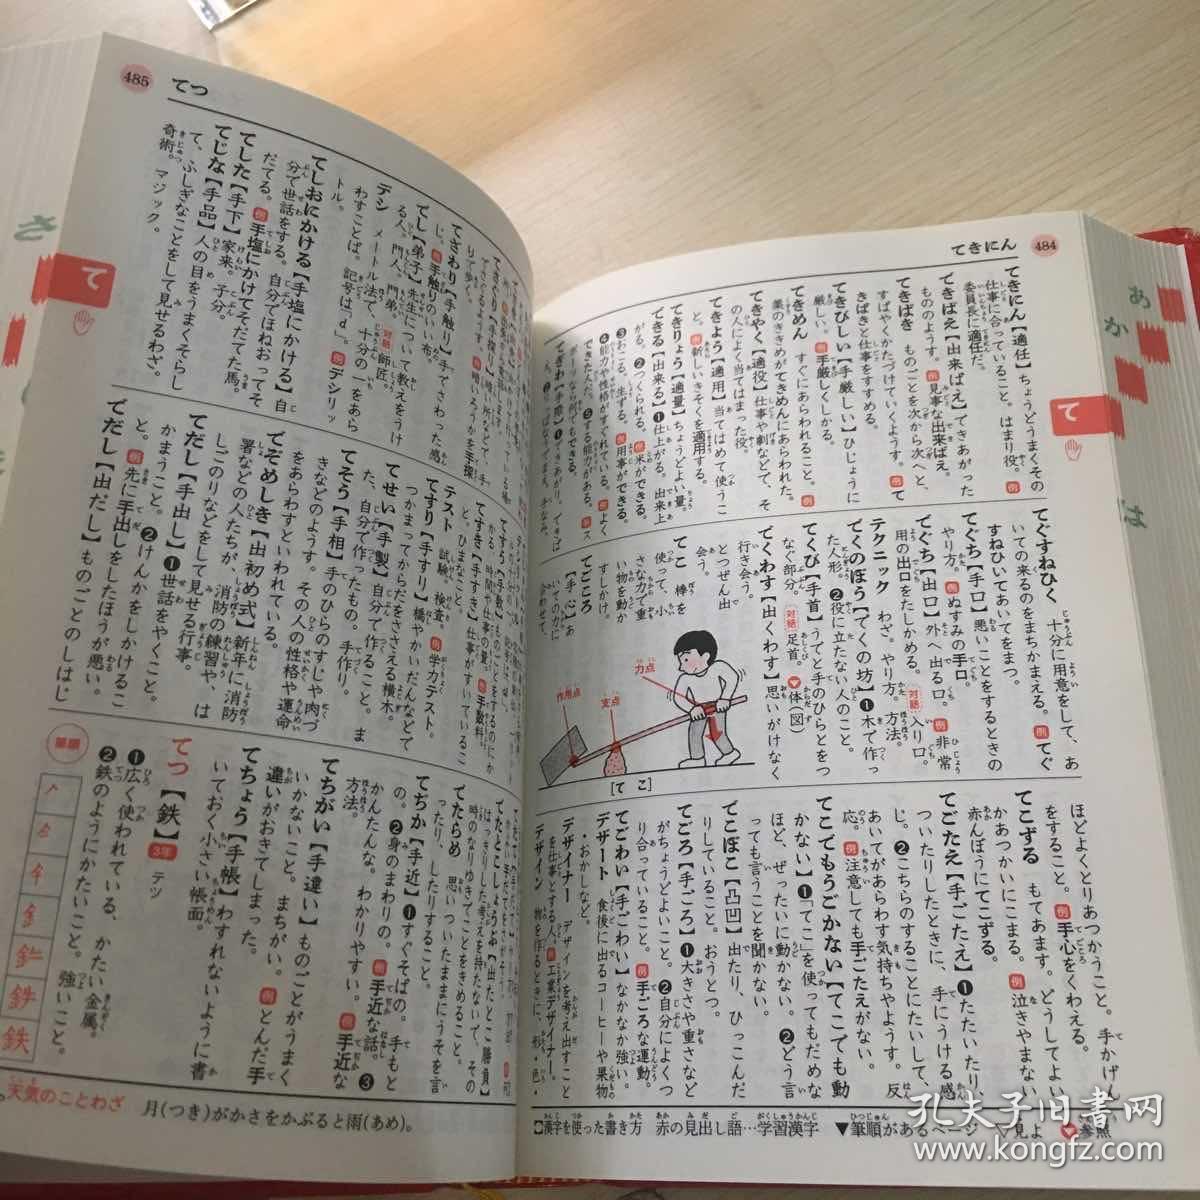 484
てきにん
てきにん【適任】ちょうどうまくその
仕事に合っていること。はまり役。例
委員長に適任だ。
てきばえ【出来ばえ】できあがった
もののようす。例見事な出来ばえ。
てきぱき ものごとを次から次へと、
すばやくかたづけていくようす。例て
きぱきと仕事をすすめる。
てきびしい【手厳しい】ひじょうに
厳しい。例手厳しくしかる。
てきめん すぐにあらわれること。例
薬のききめがてきめんにあらわれた。
てきやく【適役】仕事や劇などで、そ
の人によく当てはまった役。
てきよう【適用】当てはめて使うこ
と。例新しいきそくを適用する。
てきりょう【適量】ちょうどよい量。
できる【出来る】❶仕上がる。出来上
がる。❷つくられる。例米ができる。
❸おこる。生ずる。例用事ができる。
❹能力や性格がすぐれている。例よく
できた人だ。❺する能力がある。
てぐすねひく 十分に用意をして、あ
いての来るのをまちかまえる。例てぐ
すねひいてあいてをまつ。
てぐち【手口】悪いことをするときの
やり方。例ぬすみの手口。
でぐち【出口】外へ出る口。例非常
用の出口をたしかめる。対語入り口。
テクニック わざ。やり方。方法。
でくのぼう【でくの坊】❶木で作っ
た人形。❷役に立たない人のこと。
てくび【手首】うでと手のひらとをつ
なぐ部分。対語足首。▼体(図)
でくわす【出くわす】思いがけなく
行き会う。
とつぜん出
会う。
てこ 棒を
使って、小
さな力で重
い物を動か
すしかけ。
てごころ
【手心】あ
力点
支点
作用点
[てこ]
ほどよくとりあつかうこと。手かげん
をすること。例手心をくわえる。
てこずる もてあます。どうしてよい
かあつかいにこまる。例泣きやまない
赤んぼうにてこずる。
てごたえ【手ごたえ】❶たたいたり
ついたりしたときに、手にうける感
じ。❷こちらのすることにたいして、
あいてがあらわす気持ちやようす。反
応。例注意しても手ごたえがない。
てこでもうごかない【てこでも動
かない】❶「てこ」を使ってもだめな
ほど、ぜったいに動かない。❷どう言
っても言うことを聞かない。
でこぼこ【凸凹】出たり、ひっこんだ
りしていること。おうとつ。
てごろ【手ごろ】❶大きさや重さなど
がちょうどよいこと。❷自分によくつ
り合っていること。例手ごろな運動。
てごわい【手ごわい】なかなか強い。
デザート 食後に出るコーヒーや果物
・おかしなど。
デザイナー デザインを考え出すこと
を仕事とする人。例工業デザイナー。
デザイン 物を作るときに、形・色・
【漢字を使った書き方 赤の見出し語…学習漢字 ▼筆順があるページ ▽見よ ▼参照
て
あ
か
は
485
てつ
てざわり【手触り】手でさわった感
じ。例手触りのいい布。
でし【弟子】先生について教えをうけ
る人。門人。門弟。対語師匠。
デシ メートル法で、十分の一をあら
わすことば。記号は「d」。例デシリッ
トル。
てしおにかける【手塩にかける】自
分で世話をする。自分でほねおってそ
だてる。例手塩にかけてそだてた馬。
てした【手下】家来。子分。
てじな【手品】人の目をうまくそらし
て、ふしぎなことをして見せるわざ。
奇術。マジック。
てすう【手数】ものごとをするのにか
かる、時間や仕事の量。例手数料。
てすき【手すき】仕事がすいているこ
と。ひまなこと。
テスト 試験。検査。例学力テスト。
てすり【手すり】橋やかいだんなどで
つかまってからだをささえる横木。
てせい【手製】自分で作ること。ま
た、自分で作ったもの。手作り。
てそう【手相】手のひらのすじや肉づ
きなどのようす。その人の性格や運命
をあらわすといわれている。
でぞめしき【出初め式】新年に消防
署などの人たちが、消防の練習や、は
しごのりなどをして見せる行事。
てだし【手出し】❶世話をやくこと。
かまうこと。❷けんかをしかけるこ
と。例先に手出しをしたほうが悪い。
でだし【出だし】ものごとのしはじ
でたとこしょうぶ【出たとこ勝負】
はっきりした考えを持たないで、その
時のなりゆきでことをきめること。
でたらめ 思いついたままにうそを言
ったり、したりすること。
てぢか【手近】❶すぐそばの。手もと
の。❷身のまわりの。例手近な話。❸
かんたんな。わかりやすい。例手近な
方法。
てちがい【手違い】ものごとがうまく
いかないこと。まちがい。例とんだ手
違いがおきてしまった。
てちょう【手帳】わすれないように書
いておく小さい帳面。
てつ【鉄】3年 テツ
❶広く使われている、かたい金属。
❷鉄のようにかたいこと。強いこと。
筆順
鉄
天気のことわざ 月(つき)がかさをかぶると雨(あめ)。
て
さ
孔夫子旧書网
www.kongfz.com